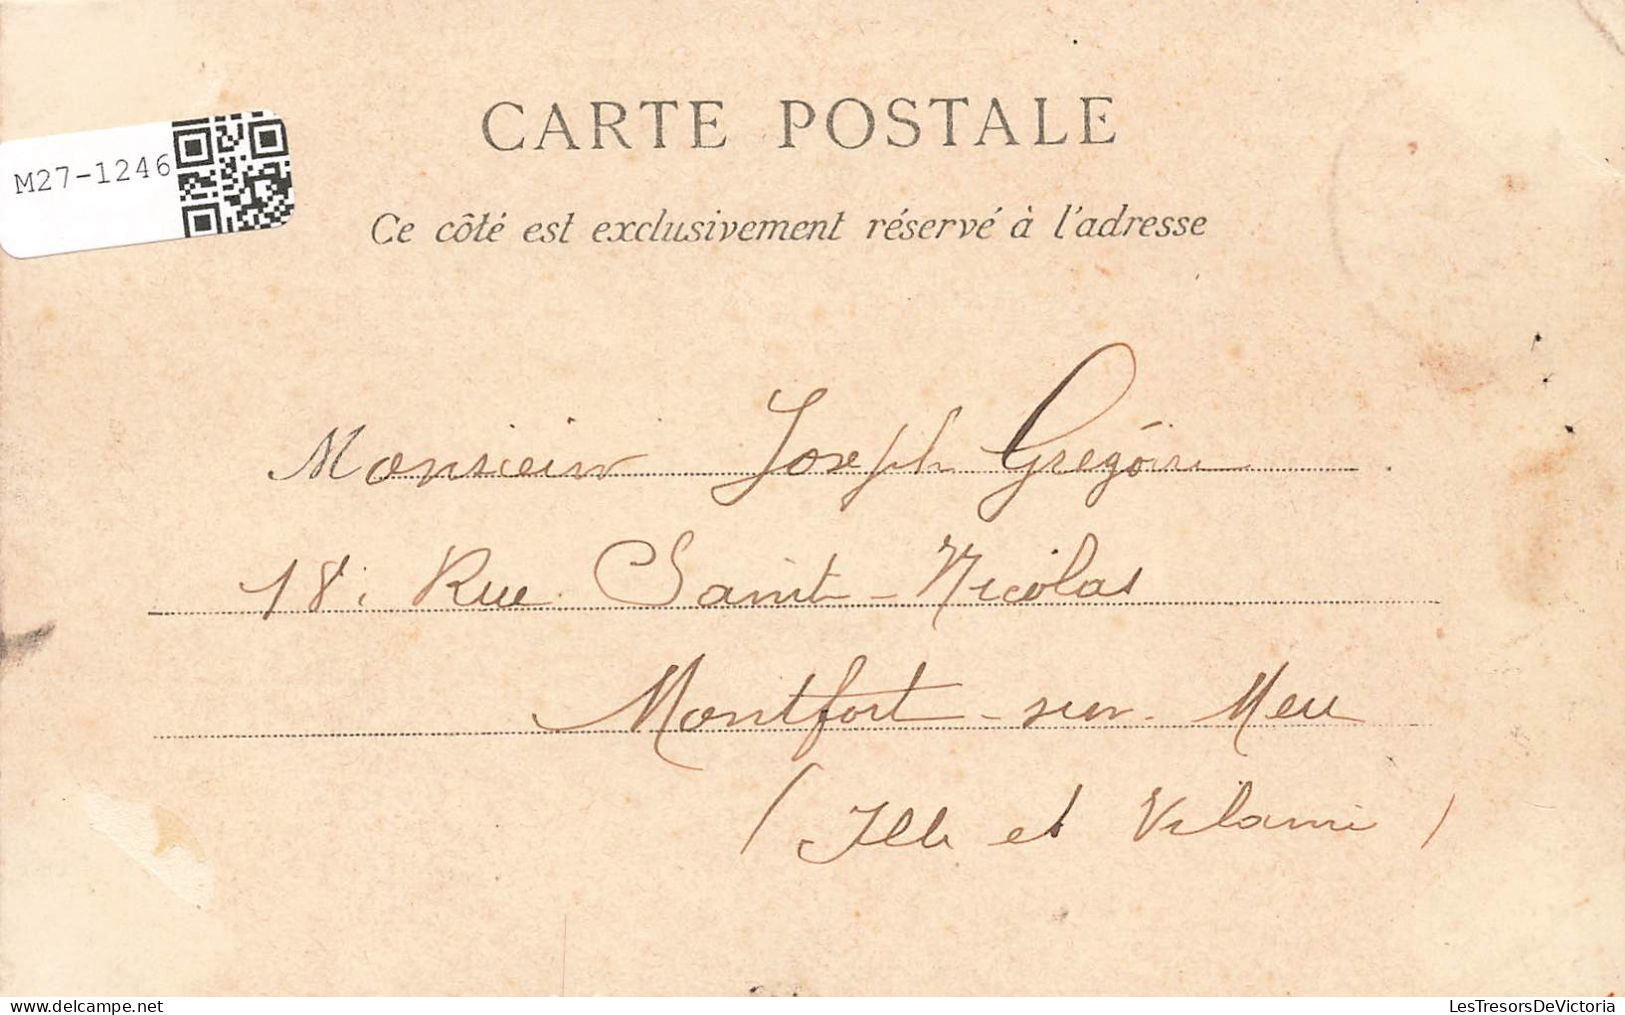 CARTE POSTALE
M27-1246
Ce côté est exclusivement réservé à l'adresse
Monsieur Joseph Grégoire
18, Rue Saint-Nicolas
Montfort-sur-Meu
(Ille et Vilaine)
LesTresorsDeVictoria